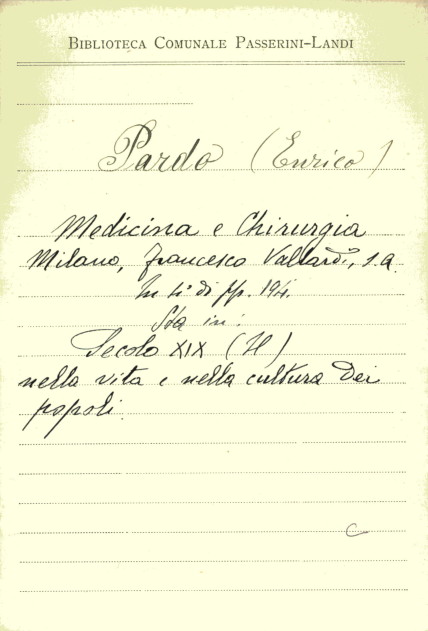 BIBLIOTECA COMUNALE PASSERINI-LANDI
Pardo (Enrico)
Medicina e Chirurgia
Milano, Francesco Vallardi, s.a.
In 4° di pp. 194.
Sta in:
Secolo XIX (Il)
nella vita e nella cultura dei
popoli.
C